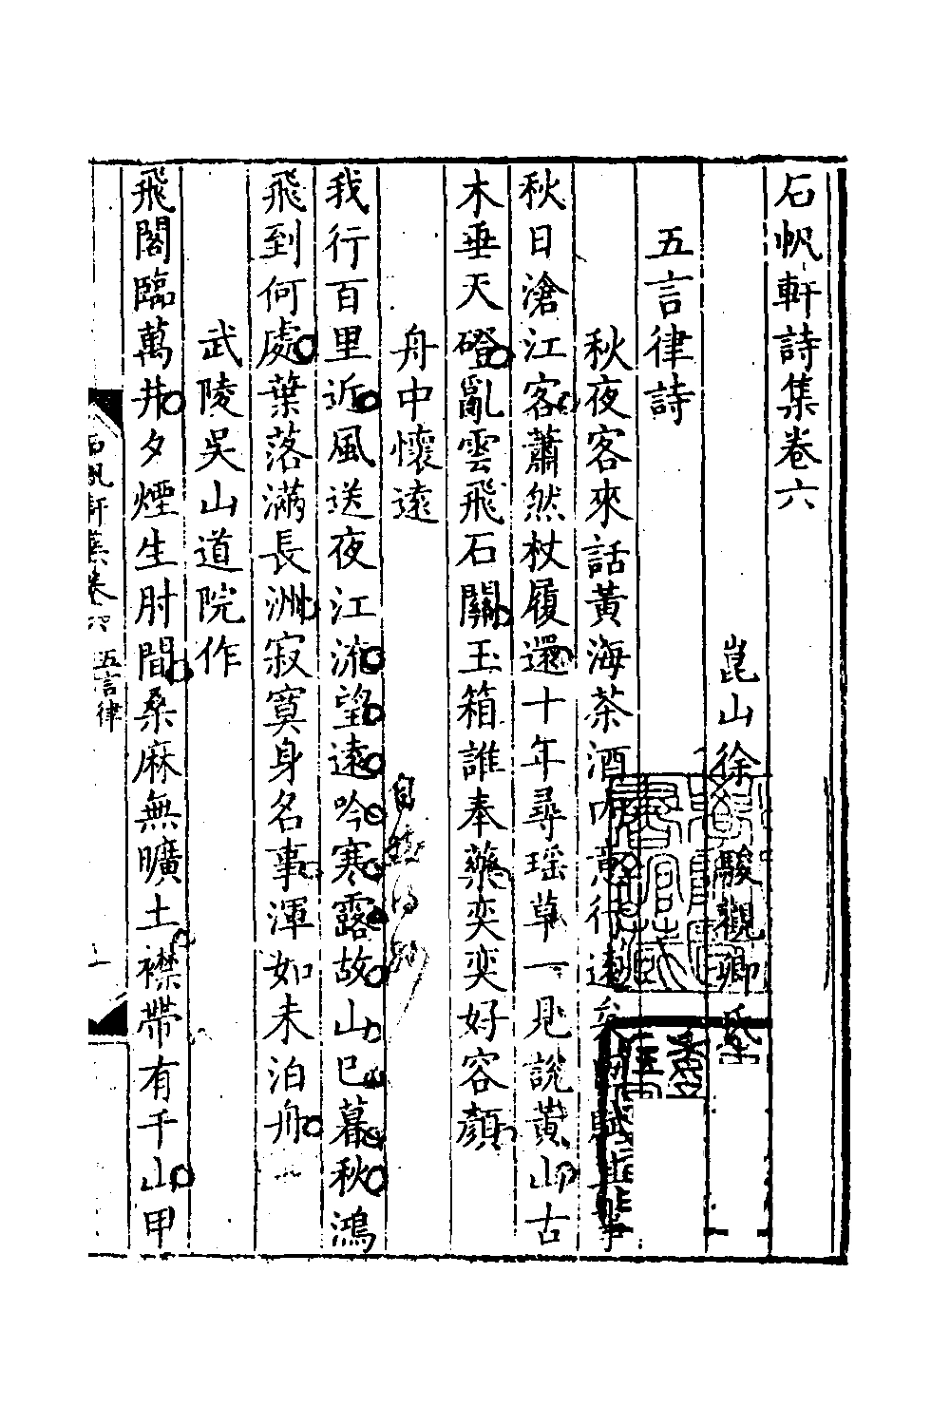 石帆軒詩集卷六
崑山徐駿觀卿
五言律詩
秋夜客來話黃海茶酒
秋日滄江客蕭然杖履還十年尋瑤草一見說黃山古
木垂天磴亂雲飛石關玉箱誰奉藥奕奕好容顏
舟中懷遠
我行百里近風送夜江流望遠吟寒露故山已暮秋鴻
飛到何處葉落滿長洲寂寞身名事渾如未泊舟
武陵吳山道院作
飛閣臨萬井夕煙生肘間桑麻無曠土襟帶有千山甲
五言律